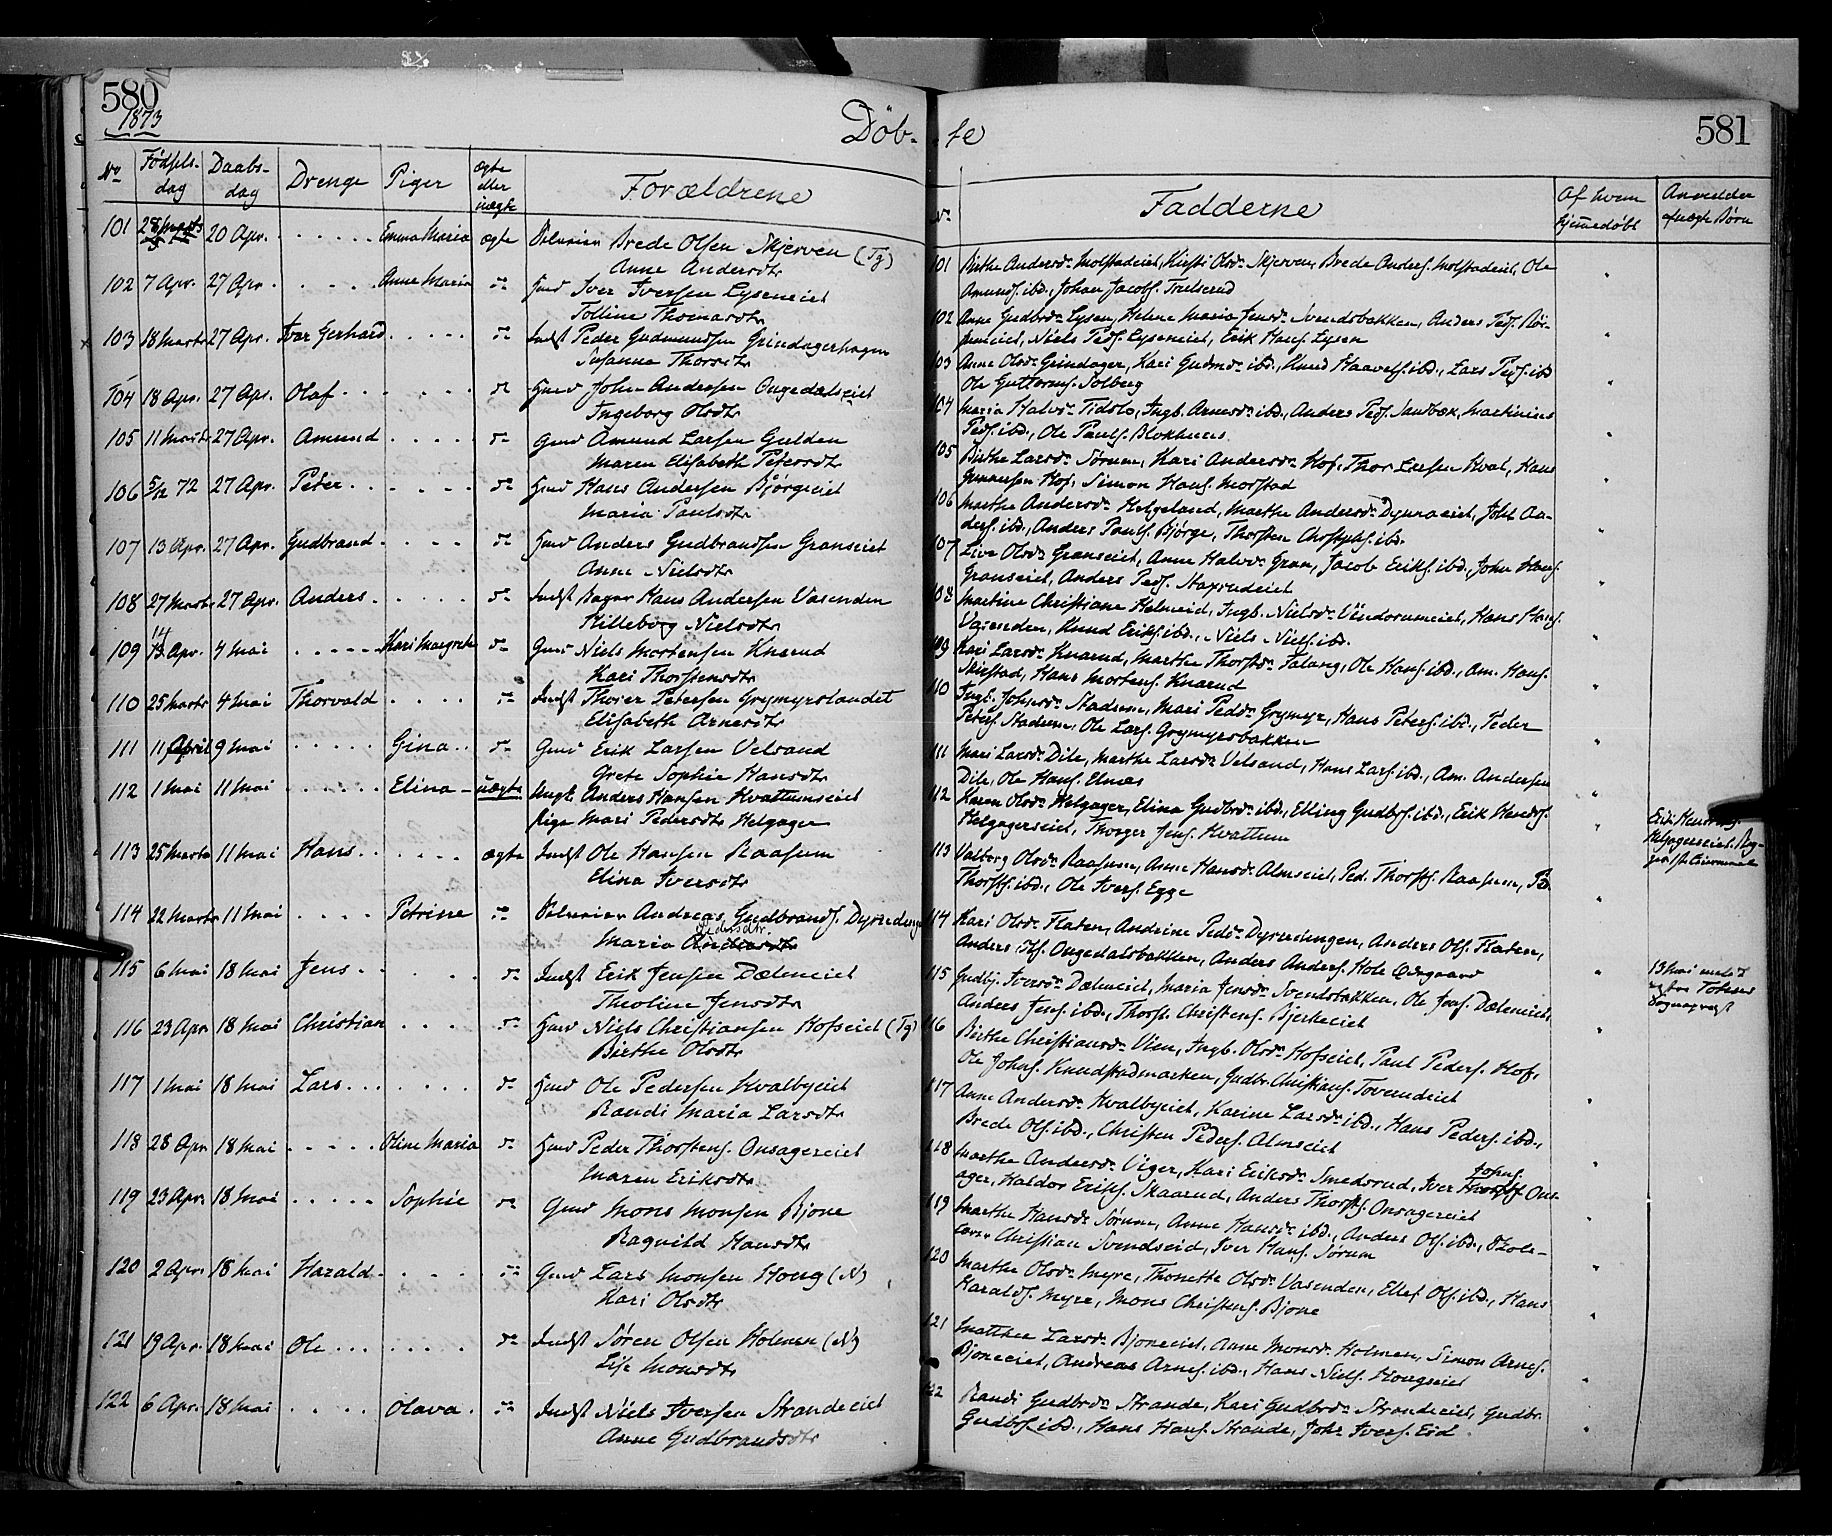 580
1873
Døb-
No
Fødsels-dag
Daabs-dag
Drenge
Piger
ægte eller uægte
Forældrene
101 20 Apr. Emma Maria ægte Brede Olsen Skjerven (Tg)
Anne Andersdtr
102 7 Apr. 27 Apr. Anne Maria do Huusmd Iver Iversen Lyseneiet
Tolline Thomasdtr
103 18 Marts 27 Apr. Ivar Gerhard do Inderst Peder Gudmundsen Grindagerhagen
Susanne Thorsdtr
104 18 Apr. 27 Apr. Olaf do Johan Andersen Ongedalseiet
Ingeborg Olsdtr
105 11 Marts 27 Apr. Amund do Gmd Amund Larsen Gulden
Maren Elisabeth Petersdtr
106 5/12 72 27 Apr. Peter do Hans Andersen Bjørgeiet
Maria Paulsdtr
107 13 Apr. 27 Apr. Gudbrand do Anders Gudbrandsen Granseiet
Anne Nielsdtr
108 27 Marts 27 Apr. Anders do Hans Andersen Vasenden
Killeborg Nielsdtr
109 14 Apr. 4 Mai Kari Margrete do Niels Mortensen Knarud
Kari Thorstensdtr
110 25 Marts 4 Mai Thorvald do Thorer Petersen Grymyrslandet
Elisabeth Arnesdtr
111 11 April 9 Mai Gina do Erik Larsen Velsand
Grete Sophie Hansdtr
112 1 Mai 11 Mai Elina uægte Ungk. Anders Hansen Kvattumseiet
Pige Mari Pedersdtr Helgager
113 25 Marts 11 Mai Hans ægte Ole Hansen Raasum
Elina Iversdtr
114 22 Marts 11 Mai Petrine do Andreas Gudbrands.
Pedersdtr.
Maria Andersdtr
115 6 Mai 18 Mai Jens do Erik Jensen Dæleneiet
Theoline Jensdtr
116 23 Apr 18 Mai Christian do Niels Christiansen Hofseiet (Tg)
Birthe Olsdtr
117 1 Mai 18 Mai Lars do Ole Pedersen Kvalbyeiet
Randi Maria Larsdtr
118 28 Apr 18 Mai Oline Maria do Peder Thorstens. Onsagereiet
Maren Eriksdtr
119 23 Apr. 18 Mai Sophie do Mons Monsen Bjone
Ragnild Hansdtr
120 2 Apr. 18 Mai Harald do Lars Monsen Houg (N)
Kari Olsdtr
121 19 Apr. 18 Mai Ole do Søren Olsen Holmen (N)
Lise Monsdtr
122 6 Apr. 18 Mai Olava do Niels Iversen Strandeeiet
Anne Gudbrandsdtr
581
te
No
Fadderne
Af hvem hjemmedøbt
Anmelder af uægte Børn
101 Birthe Andersdr Molstadeiet, Kirsti Olsdr Skjerven, Brede Anders. Molstadeiet, Ole
Amunds. ibd., Johan Jacobs. Trulserud
102 Anne Gudbrdr Lysen, Helene Maria Jensdr Svendsbakken, Anders Peds.
Niels Peds. Lyseneiet, Erik Hans. Lysen
103 Anne Olsdr Grindager, Kari Gudmdr ibd., Knud Haavels. ibd., Lars Peds. ibd
Ole Guttorms. Solberg
104 Maria Halvdr Tidslo, Ingb. Arnesdr ibd., Anders Peds. Sandbæk, Martinius
Peds. ibd., Ole Pauls. Blokhuus
105 Birthe Larsdr Sørum, Kari Andersdr Hof, Thor Larsen Hval, Hans
Gunnarsen Hof, Simon Hans. Morstad
106 Marthe Andersdr Helgeland, Marthe Andersdr Dynnaeiet, Joh. An-
ders. ibd., Anders Pauls. Bjørge, Thorsten ibd.
107 Live Olsdr Granseiet, Anne Halvdr Gran, Jacob Eriks. ibd., John Hans.
Granseiet, Anders Peds.
108 Martine Christiane Helmeid, Ingb. Nielsdr Hans Hans.
Vasenden, Knud Eriks. ibd., Niels Niels. ibd.
109 Kari Larsdr Knarud, Marthe Thorstdr Falang, Ole Hans. ibd., Am. Hans.
Skiaestad, Hans Mortens. Knarud
110 Ingb. Johnsdr Staderne, Mari Peddr Grymyr, Hans Peters. ibd., Peder
Peters. Staderne, Ole Lars. Grymyrsbakken
111 Mari Larsdr Dile, Marthe Larsdr Velsand, Hans Lars. ibd., Am. Andersen
Dile, Ole Hans. Elnæs
112 Karen Olsdr Helgager, Elina Gudbrdr ibd., Elling Gudbrs. ibd., Erik
Helgagerseiet, Thorger Jens. Kvattum
113 Valborg Olsdr Raasum, Anne Hansdr Almseiet, Ped. Thorsts. Raasum,
Thorsts. ibd., Ole Ivers. Egge
114 Kari Olsdr Flaten, Andrine Peddr Anders Ols. Flaten,
Anders Ols. Ongedalsbakken, Anders Anders. Hole
115 Gudbj. Iversdr Dæleneiet, Maria Jensdr Svendsbakken, Ole Jens. Dæleneiet,
Anders Jens. ibd., Thorst. Christens. Bjerkeeiet
13 Mai
116 Birthe Christiansdr Vien, Ingb. Olsdr Hofseiet, Paul Peders. Hof,
Ole Johns. Knudstadmarken, Gudbr. Christians. Toverudeiet
117 Anne Andersdr Kvalbyeiet, Karine Larsdr ibd., Hans Peders. ibd.,
Brede Ols. ibd., Christen Peders. Almseiet
118 Marthe Andersdr Viger, Kari Eriksdr Smedsrud, Iver Johns. Ons-
ager, Haldor Eriks. Skaarud, Anders Thorsts. Onsagereiet
119 Marthe Hansdr Sørum, Anne Hansdr ibd., Anders Ols. ibd., Skole-
lærer Christian Svendseid, Iver Hans. Sørum
120 Marthe Olsdr Myre, Thonette Olsdr Vasenden, Ellef Ols. ibd., Hans
Haralds. Myre, Mons Christens. Bjone
121 Matthea Larsdr Bjoneeiet, Anne Monsdr Holmen, Simon Arnes.
Bjoneeiet, Andreas Arnes. ibd., Hans Niels. Hougseiet
122 Randi Gudbrdr Strande, Kari Gudbrdr Strandeeiet, Gudbr.
Gudbrs. ibd., Hans Hans. Strande, Johs Ivers. Eid